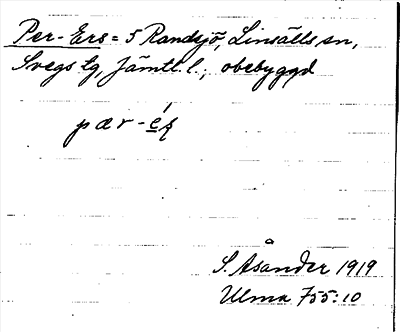 Per-Ers = 5 Randsjö, Linsälls sn,
Svegs tg, Jämtl. l.; obebyggd
pær-
S. Åsander 1919
Ulma 755:10